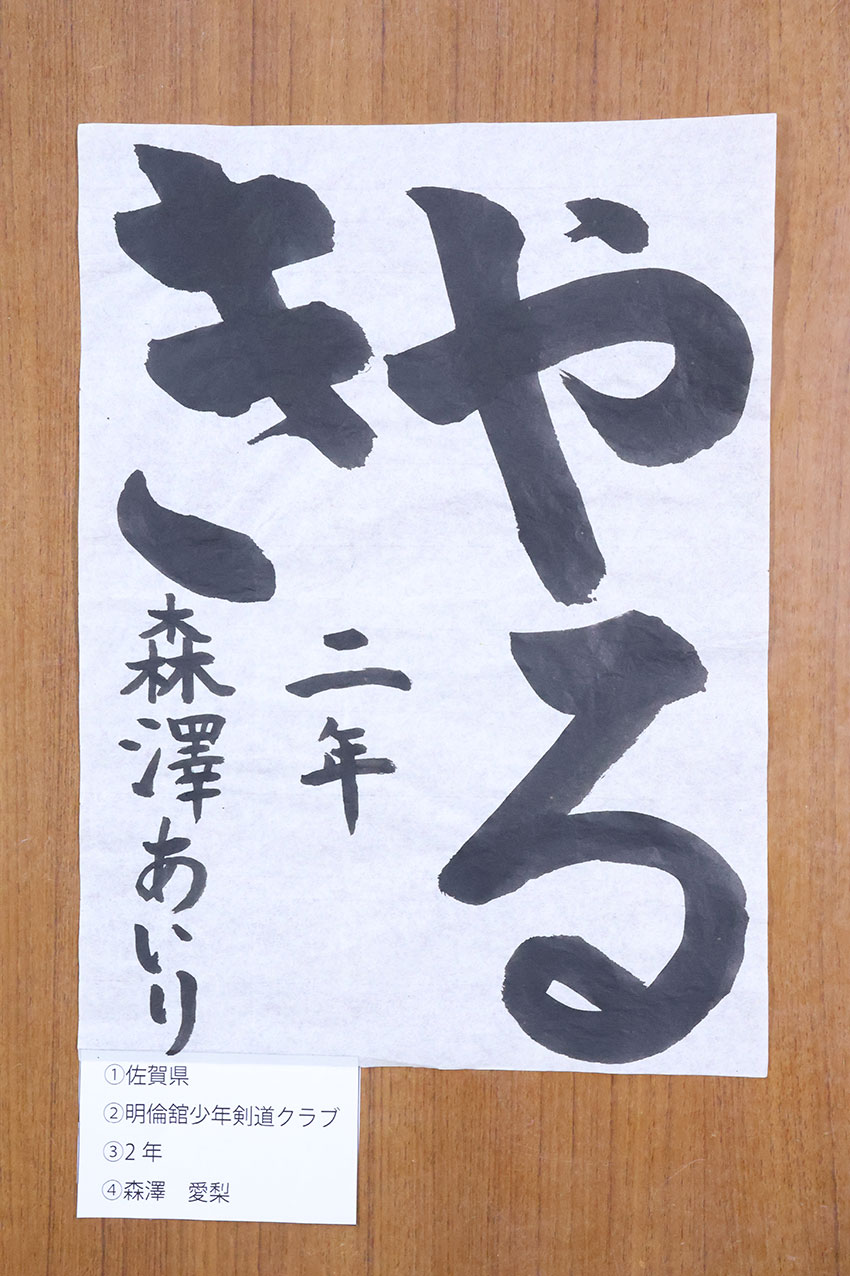 やる
き
二年
森澤あいり
①佐賀県
②明倫舘少年剣道クラブ
③2年
④森澤　愛梨